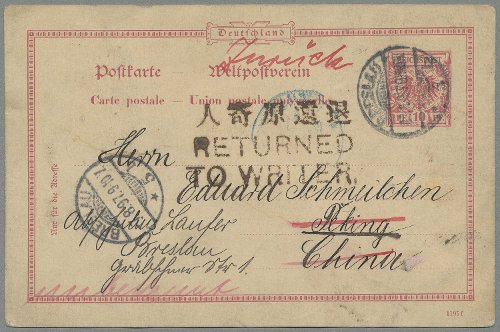 Deutschland
Zurück
Postkarte — Weltpostverein
Carte postale — Union postale universelle
退還原寄人
RETURNED
TO WRITER.
Herrn
Eduard Schmulchen
Peking
China
Laufer
Breslau
Gräbschner Str 1.
Nur für die Adresse
BRESLAU
10